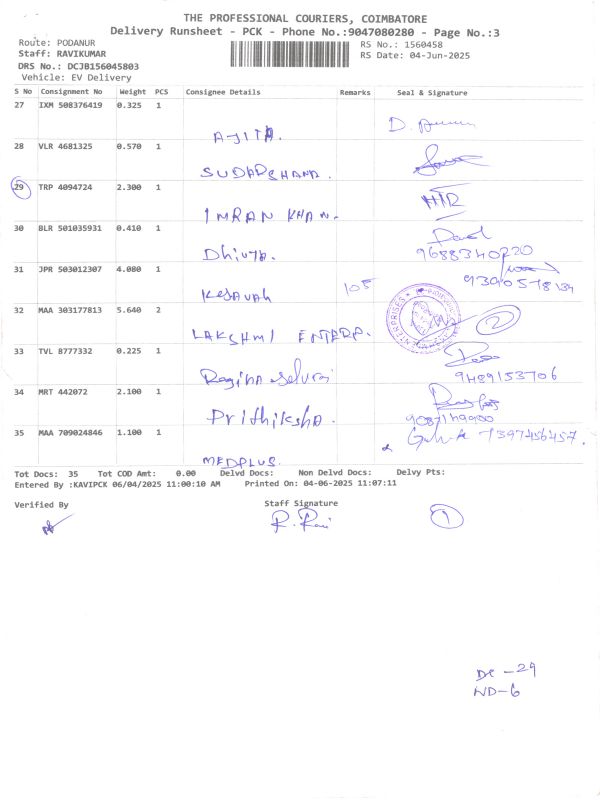 THE PROFESSIONAL COURIERS, COIMBATORE
Delivery Runsheet - PCK - Phone No.:9047080280 - Page No.:3
Route: PODANUR
RS No.: 1560458
Staff: RAVIKUMAR
RS Date: 04-Jun-2025
DRS No.: DCJB156045803
Vehicle: EV Delivery
S No Consignment No Weight PCS Consignee Details Remarks Seal & Signature
27 IXM 508376419 0.325 1
AJITA.
28 VLR 4681325 0.570 1
SUDARSHANA.
29 TRP 4094724 2.300 1
IMRAN KHAN.
30 BLR 501035931 0.410 1
Dhivya. 9688340720
31 JPR 503012307 4.080 1
Kesavah 105
32 MAA 303177813 5.640 2
LAKSHMI ENTERP. 2
33 TVL 8777332 0.225 1
Regina Selvraj 9489153706
34 MRT 442072 2.100 1
Prithiksha.
35 MAA 709024846 1.100 1 7397456457.
MEDPLUS.
Tot Docs: 35 Tot COD Amt: 0.00 Delvd Docs: Non Delvd Docs: Delvy Pts:
Entered By :KAVIPCK 06/04/2025 11:00:10 AM Printed On: 04-06-2025 11:07:11
Verified By Staff Signature
R. Ravi 1
DC -29
ND-6